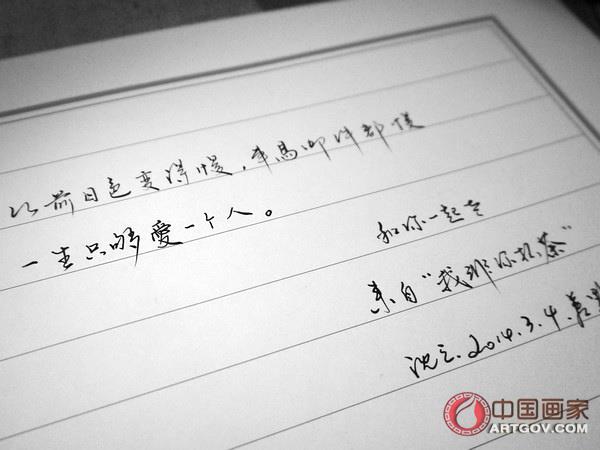 以前日色变得慢，车马邮件都慢
一生只够愛一个人。
和你一起去
来自“我非你杯茶”
沈立.2014.3.4.
中国画家
ARTGOV.COM